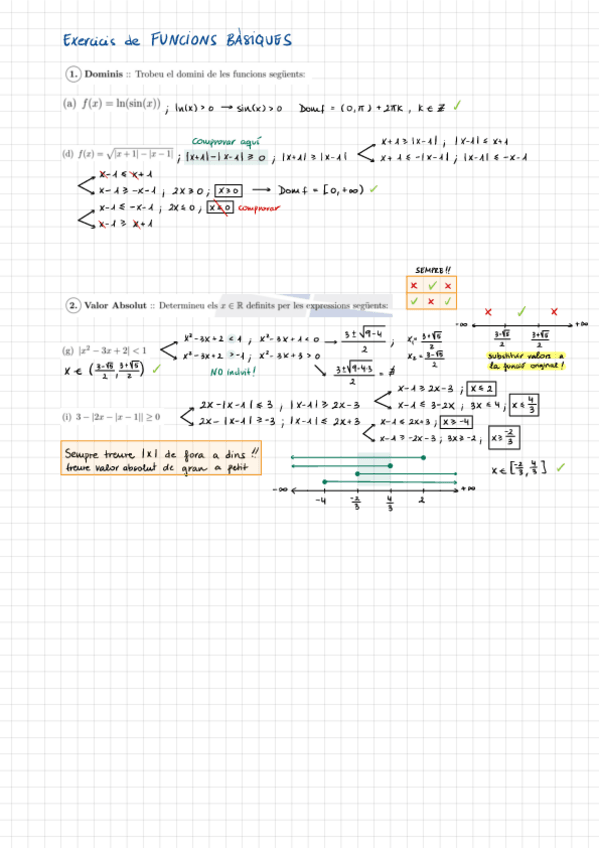 Exercicis de FUNCIONS BÀSIQUES
1. Dominis :: Trobeu el domini de les funcions següents:
(a) f(x) = ln(sin(x)) ; ln(x) > 0 → sin(x) > 0 Dom f = (0, π) + 2πk , k ∈ ℤ ✓
Comprovar aquí
(d) f(x) = √(|x+1| − |x−1|) ; |x+1| − |x−1| ≥ 0 , |x+1| ≥ |x−1|
x+1 ≥ |x−1| , |x−1| ≤ x+1
x+1 ≤ −|x−1| ; |x−1| ≤ −x−1
x−1 ≤ x+1
x−1 ≥ −x−1 , 2x ≥ 0 ; x ≥ 0 → Dom f = [0, +∞) ✓
x−1 ≤ −x−1 ; 2x ≤ 0 ; x ≤ 0 comprovar
x−1 ≥ x+1
SEMPRE!!
× ✓ ×
✓ × ✓
2. Valor Absolut :: Determineu els x ∈ ℝ definits per les expressions següents:
(g) |x² − 3x + 2| < 1
x²−3x+2 < 1 , x²−3x+1 < 0 → 3±√9−4 / 2 ; x₁= 3+√5 / 2
x₂= 3−√5 / 2
x²−3x+2 > −1 , x²−3x+3 > 0
3±√9−4·3 / 2 = ∄
NO inclòs!
x ∈ (3−√5 / 2 , 3+√5 / 2) ✓
× ✓ ×
−∞ 3−√5 / 2 3+√5 / 2 +∞
substituir valors a
la funció original!
(i) 3 − |2x − |x − 1|| ≥ 0
2x − |x−1| ≤ 3 , |x−1| ≥ 2x−3
x−1 ≥ 2x−3 ; x ≤ 2
x−1 ≤ 3−2x ; 3x ≤ 4 ; x ≤ 4/3
2x − |x−1| ≥ −3 ; |x−1| ≤ 2x+3
x−1 ≤ 2x+3 ; x ≥ −4
x−1 ≥ −2x−3 ; 3x ≥ −2 , x ≥ −2/3
Sempre treure |x| de fora a dins !!
treure valor absolut de gran a petit
x ∈ [−2/3 , 4/3] ✓
−∞ −4 −2/3 4/3 2 +∞